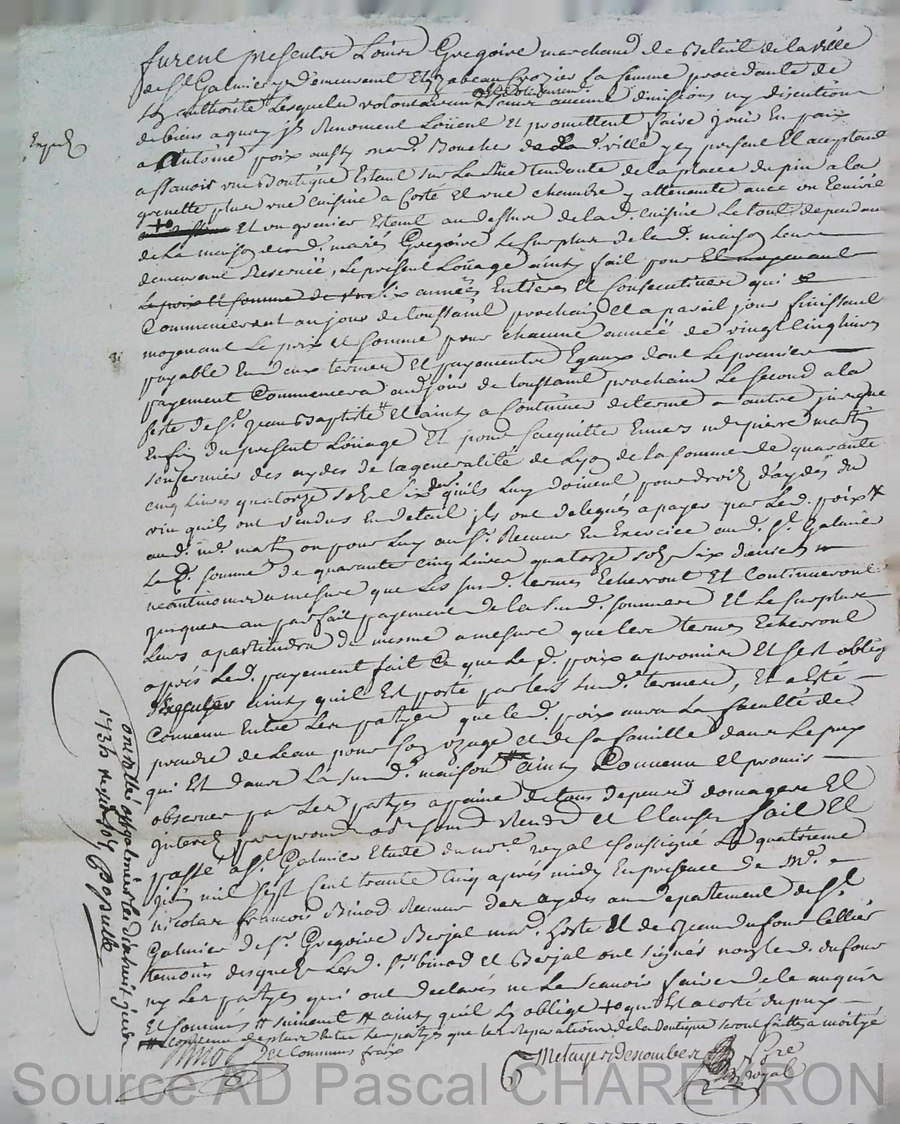 furent presents Louis Gregoire marchand de Betail de la ville
de St Galmier y demeurant Elizabeau Crozier sa femme procedante de
son authorité Lesquels volontairement sans aucune divisions ny discution
de biens a quoy ils Renoncent Loüent Et promettent faire jouir En paix
a Antoine poix aussy mard Boucher de lad ville y present Et acceptant
assavoir une Boutique Estant sur La Rue tendante de la place du pin a la
grenette plus une cuisine a Costé Et une chambre y attenante avec un Ecuirie
Et un grenier Etant au dessus de lad. cuisine Le tout dependant
de La maison desd. mariés Gregoire Le surplus de lad. maison Leurs
demeurant Reservée, Le present Loüage ainsy fait pour Et moyenant
Le prix Et somme de six années Entieres Et Consecutives qui
Commenceront au jour de toussaint prochain Et a pareil jour finissant
moyenant Le prix et somme pour chacune année de vingt cinq livres
payable En deux termes Et payements Egaux dont Le premier
payement Commencera aud jour de toussaint prochain Le second a la
feste de St. Jean Baptiste Et ainsy a Continuer de terme a autre jusques
En fin du present Loüage Et pour s'acquitter Envers mr pierre martin
sousfermier des aydes de la generalité de Lyon de la somme de quarante
cinq Livres quatorze sols six quils Luy doivent pour droits d'aydes du
vin quils ont vendus En detail ils ont delegués a payer par Led. poix
aud. mr. martin ou pour Luy au Sr. Receveur En Exercice aud. St. Galmier
La d. somme de quarante cinq Livres quatorze sols six deniers
neantmoins a mesure que Les susd. termes Echerront Et Continueront
jusques au parfait payement de la susd. somme Et Le surplus
Leurs apartiendra de mesme a mesure que les termes Echerront
après Led. payement fait Ce que Le d. poix a promis Et s'est obligé
ainsy quil Est porté par les susd. termes, Et a Esté
Convenu Entre Les partyes que led. poix aura La faculté de
prendre de Leau pour son uzage et de sa famille dans Le puy
qui Et dans La susd. maison ainsy Convenu et promis
observer par Les partyes a paine de tous depens domages Et
interets par promes obon Rendu et Clauses fait Et
passé a St. Galmier Etude du nore. royal soussigné Le quatrieme
juin mil sept Cent trante Cinq après midy En presence de Mr.
nicolas francois Binod Receveur des aydes au departement de St.
Galmier de Sr. Gregoire Berjal mard. hoste Et de Jean dufour Cellier
temoins desquels Lesd. Srs binod et Berjal ont signés non led. dufour
ny Les partyes qui ont declarés ne Le scavoir faire de ce enquis
Et sommés suivant ainsy quil sy oblige qui Et a coste du puy
convenu de plus entre les partyes que les Reparations de la Boutique seront faittes a moityé
Et Communs fraix
Binod Metayer Desnombes Nre Royal
Controllé a St galmier le dixhuit juin
1735
Source AD Pascal CHARETRON